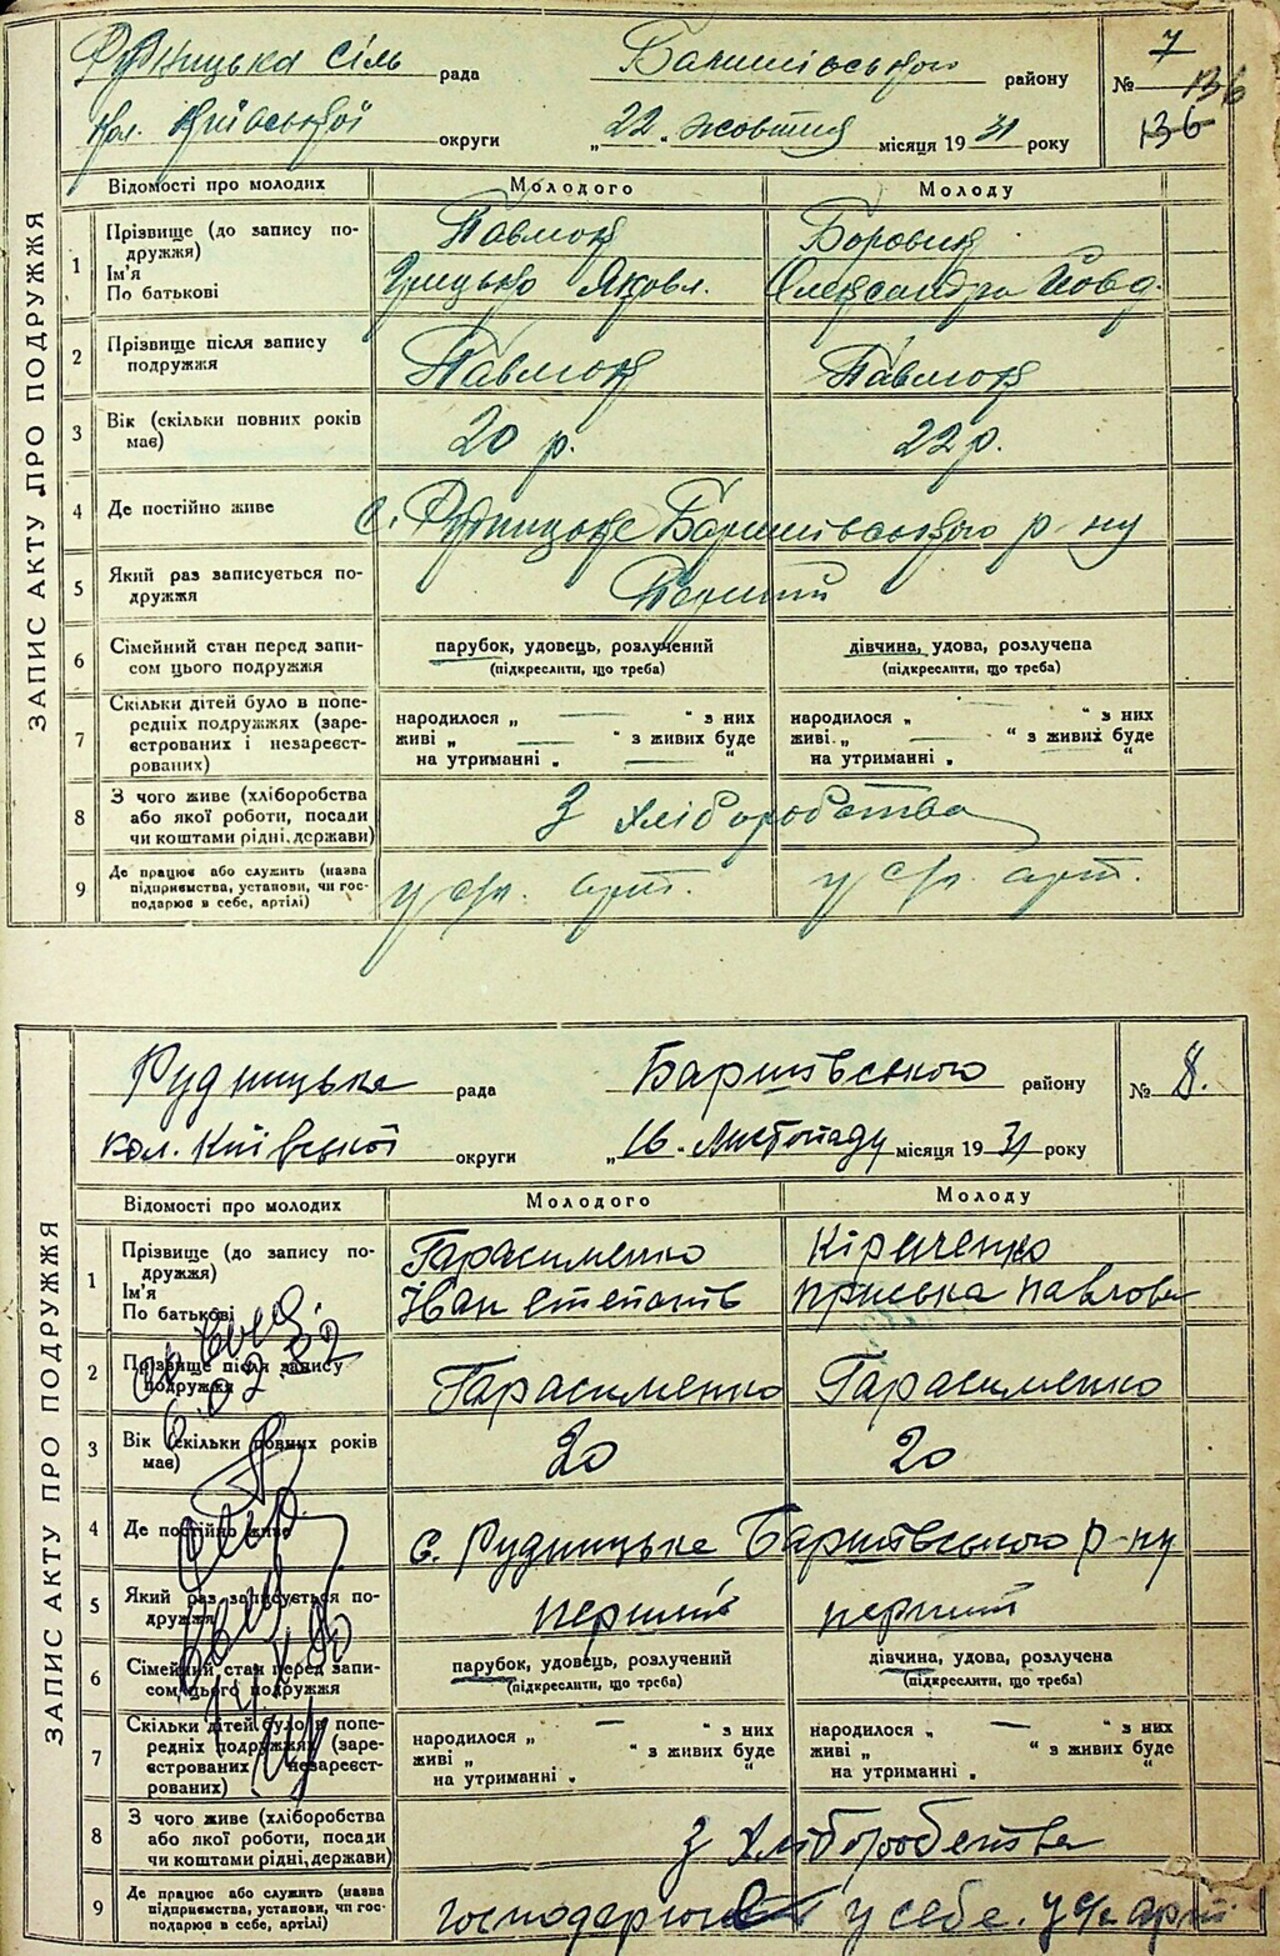 ЗАПИС АКТУ ПРО ПОДРУЖЖЯ
Рудницька сіль рада Баришівського району № 7
136
кол. Київської округи „22“ жовтня місяця 1931 року 136
Відомості про молодих Молодого Молоду
1 Прізвище (до запису по-
дружжя)
Ім'я
По батькові
Павлюк Боровик
Грицько Яковл. Олександра Йовд.
2 Прізвище після запису
подружжя
Павлюк Павлюк
3 Вік (скільки повних років
має)
20 р. 22 р.
4 Де постійно живе с. Рудницьке Баришівського р-ну
5 Який раз записується по-
дружжя
Перший
6 Сімейний стан перед запи-
сом цього подружжя
парубок, удовець, розлучений дівчина, удова, розлучена
(підкреслити, що треба) (підкреслити, що треба)
7 Скільки дітей було в попе-
редніх подружжях (заре-
єстрованих і незареєст-
рованих)
народилося „ — “ з них народилося „ — “ з них
живі „ — “ з живих буде живі „ — “ з живих буде
на утриманні „ — “ на утриманні „ “
8 З чого живе (хліборобства
або якої роботи, посади
чи коштами рідні, держави)
З хліборобства
9 Де працює або служить (назва
підприємства, установи, чи гос-
подарює в себе, артілі)
у с/г. арт. у с/г. арт.
ЗАПИС АКТУ ПРО ПОДРУЖЖЯ
Рудницька рада Баришівського району № 8.
кол. Київської округи „16“ Листопаду місяця 1931 року
Відомості про молодих Молодого Молоду
1 Прізвище (до запису по-
дружжя)
Ім'я
По батькові
Гарасименко Кириченко
Іван Степанів Пріська Павлова
2 Прізвище після запису
подружжя
Гарасименко Гарасименко
3 Вік (скільки повних років
має)
20 20
4 Де постійно живе с. Рудницьке Баришівського р-ну
5 Який раз записується по-
дружжя
перший перший
6 Сімейний стан перед запи-
сом цього подружжя
парубок, удовець, розлучений дівчина, удова, розлучена
(підкреслити, що треба) (підкреслити, що треба)
7 Скільки дітей було в попе-
редніх подружжях (заре-
єстрованих незареєст-
рованих)
народилося „ — “ з них народилося „ — “ з них
живі „ “ з живих буде живі „ “ з живих буде
на утриманні „ “ на утриманні „ “
8 З чого живе (хліборобства
або якої роботи, посади
чи коштами рідні, держави)
З Хліборобства
9 Де працює або служить (назва
підприємства, установи, чи гос-
подарює в себе, артілі)
у себе. у с/г арт.